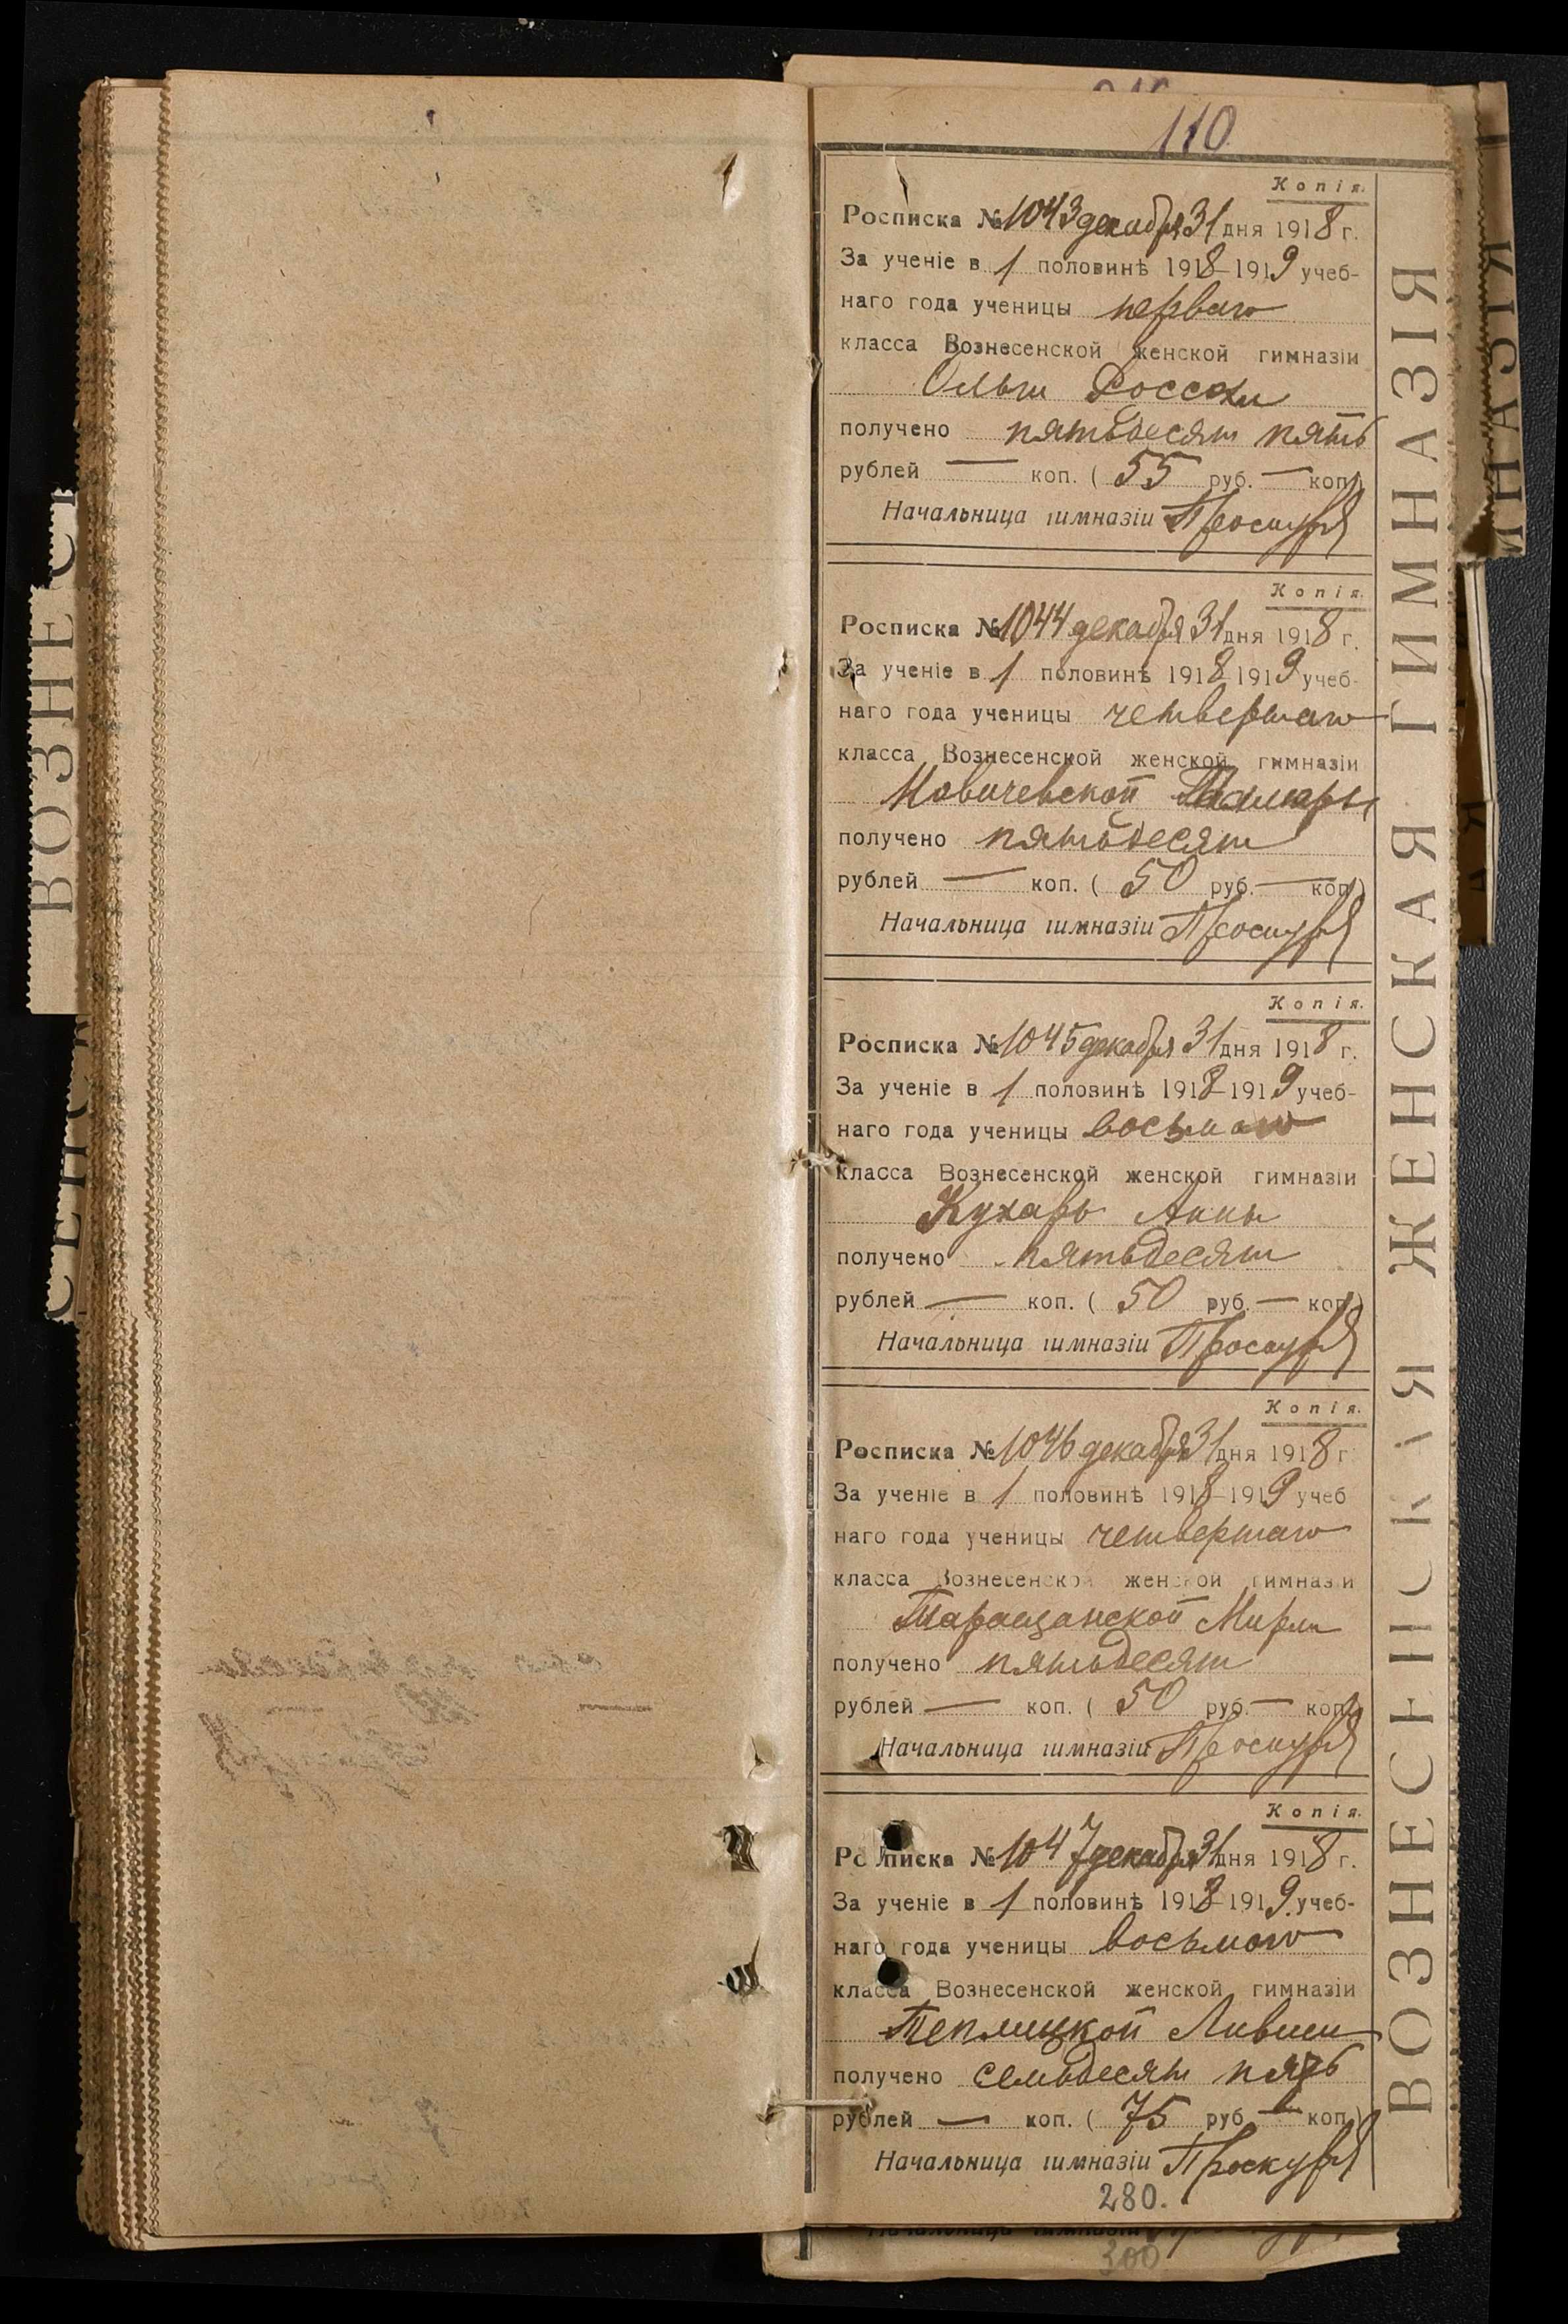 110
Копія.
Росписка № 1043 декабря 31 дня 1918 г.
За ученіе в 1 половинѣ 1918-1919 учеб-
наго года ученицы перваго
класса Вознесенской женской гимназіи
Ольги
получено пятьдесят пять
рублей — коп. ( 55 руб. — коп.)
Начальница гимназіи Проскуря
Копія.
Росписка № 1044 декабря 31 дня 1918 г.
За ученіе в 1 половинѣ 1918-1919 учеб-
наго года ученицы четвертаго
класса Вознесенской женской гимназіи
Тамары
получено пятьдесят
рублей — коп. ( 50 руб. — коп.)
Начальница гимназіи Проскуря
Копія.
Росписка № 1045 декабря 31 дня 1918 г.
За ученіе в 1 половинѣ 1918-1919 учеб-
наго года ученицы восьмаго
класса Вознесенской женской гимназіи
Кухарь Анны
получено пятьдесят
рублей — коп. ( 50 руб. — коп.)
Начальница гимназіи Проскуря
Копія.
Росписка № 1046 декабря 31 дня 1918 г.
За ученіе в 1 половинѣ 1918-1919 учеб
наго года ученицы четвертаго
класса Вознесенской женской гимназіи
Таращанской Мирли
получено пятьдесят
рублей — коп. ( 50 руб. — коп.)
Начальница гимназіи Проскуря
Копія.
Росписка № 1047 декабря 31 дня 1918 г.
За ученіе в 1 половинѣ 1918-1919 учеб-
наго года ученицы восьмого
класса Вознесенской женской гимназіи
Теплицкой Ливши
получено семьдесят пять
рублей — коп. ( 75 руб. — коп.)
Начальница гимназіи Проскуря
280.
ВОЗНЕСЕНСКАЯ ЖЕНСКАЯ ГИМНАЗІЯ
ВОЗНЕС
Начальница гимназіи
300